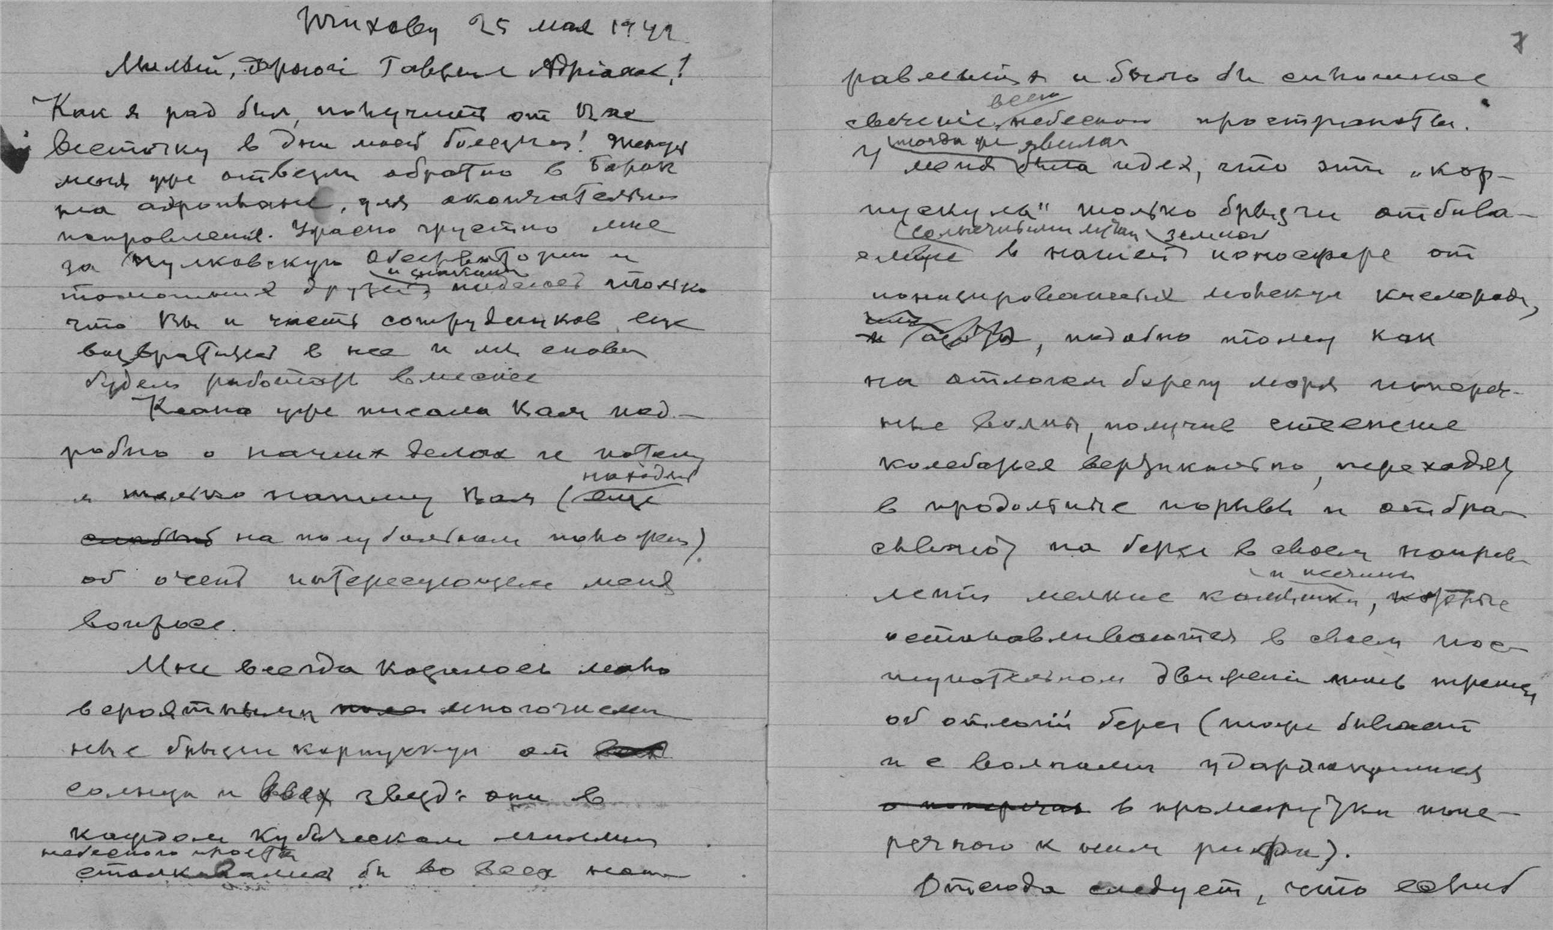 Тихову 25 мая 1942
Милый, дорогой Гавриил Адріанов.!
Как я рад был, получить от Вас
весточку в дни моей болезни! Теперь
меня уже отвезли обратно в Барак
на аэроплане, для окончательн
поправленія. Ужасно грустно мне
за Пулковскую Обсерваторию и
и знакомых
тамошних друзей, надеюсь только
что Вы и часть сотрудников еще
возвратитесь в нее и мы снова
будем работать вместе
Ксана уже писала Вам под-
робно о наших делах и потому
находясь
я только напишу Вам (еще
слабый на полубольном положении)
об очень интересующем меня
вопросе.
Мне всегда казалось мало
вероятными многочислен
ные брызги корпускул от
солнца и всех звезд: они в
каждом кубическом миллим
небесного простр
сталкивались бы во всех нап-
7
равлениях и было бы сплошное
всего
свечение небесном пространства.
тогда же явилась
У меня была идея, что эти „кор-
пускулы" только брызги отбива-
солнечными лучами земной
емые в нашей ионосфере от
ионизированных молекул кислорода,
или
и азота, подобно тому как
на отлогом берегу моря попереч-
ные волны, получив стеснение
колебаться вертикально, переходят
в продольные порывы и отбра-
сывают на берег в своем направ-
и песчинки
лении мелкие камешки, которые
останавливаются в своем пос-
тупательном движении лишь трением
об отлогий берег (тоже бывает
и с волнами ударяющимися
о поперечн в промежутки попе-
речного к ним рифа).
Отсюда следует, что если б